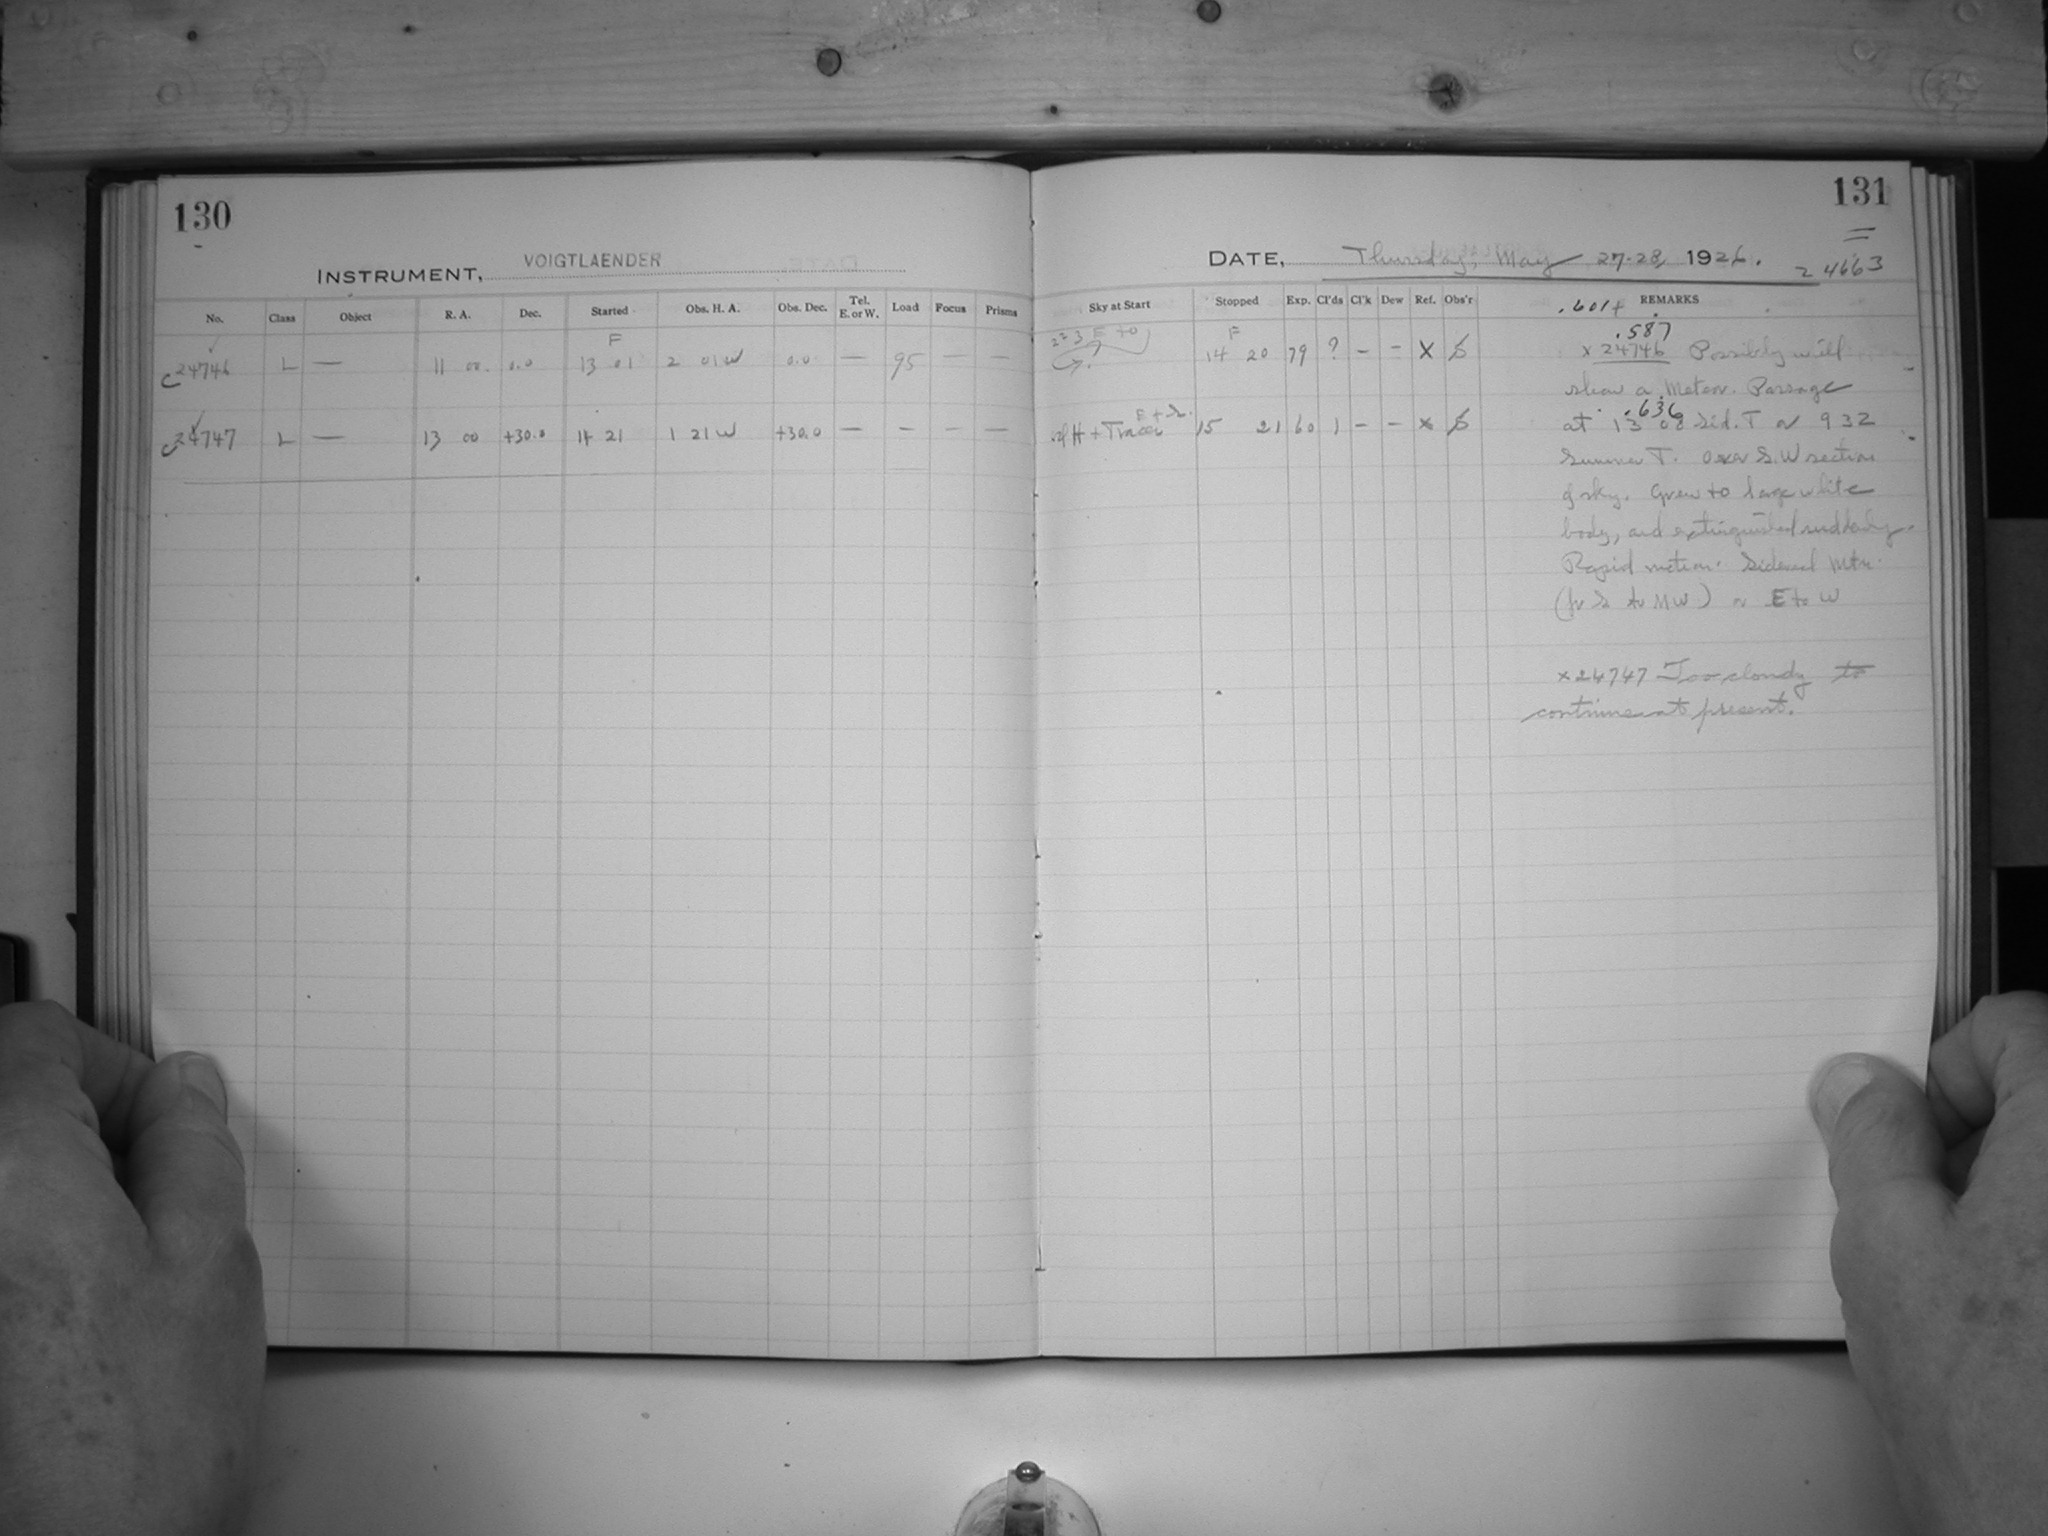 130
INSTRUMENT, VOIGTLAENDER
No. Class Object R. A. Dec. Started Obs. H. A. Obs. Dec. Tel. E. or W. Load Focus Prisms
F
C24746 L — 11 00. 0.0 13 01 2 01 W 0.0 — 95 — —
C24747 L — 13 00 +30.0 14 21 1 21 W +30.0 — — — —
131
DATE, Thursday, May 27-28, 1926.
24663
Sky at Start Stopped Exp. Cl'ds Cl'k Dew Ref. Obs'r REMARKS
.601+
F
14 20 79 ? — — X
E + S.
H + Traces 15 21 60 1 — — x
.587
x 24746 Possibly will
show a Meteor. Passage
.636
at 13 08 Sid. T or 9 32
Summer T. Over S.W section
of sky. Grew to large white
body, and extinguished suddenly.
Rapid motion. Sidereal Mtn.
(fr S to NW) or E to W
x 24747 Too cloudy to
continue at present.